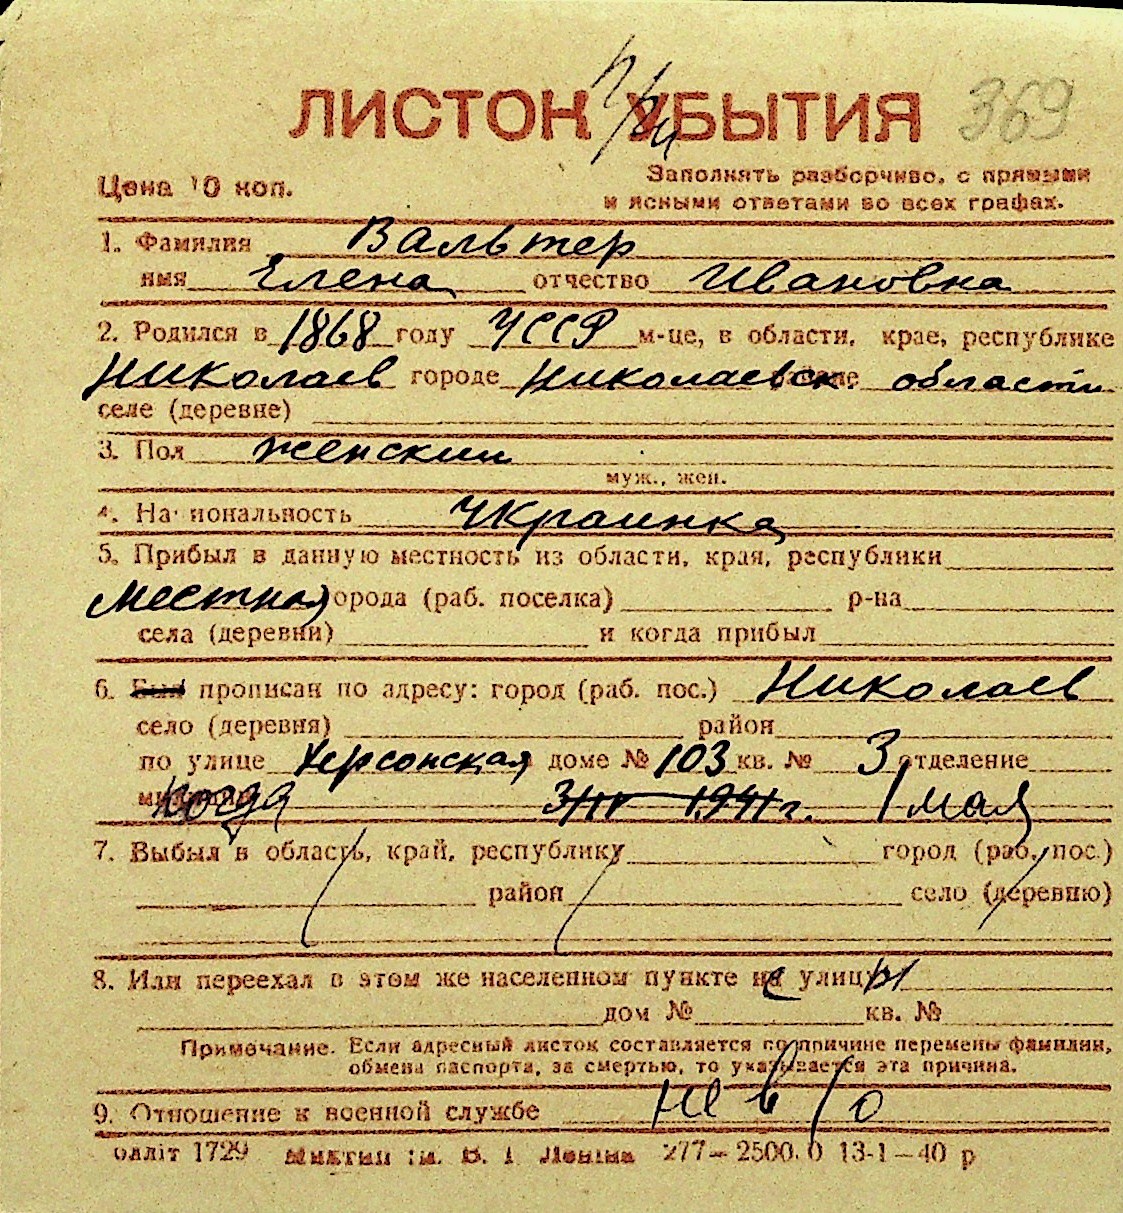 ЛИСТОК УБЫТИЯ 369
при
Цена 10 коп.
Заполнять разборчиво, с прямыми
и ясными ответами во всех графах.
1. Фамилия Вальтер
имя Елена отчество Ивановна
2. Родился в 1868 году УССР м-це, в области, крае, республике
Николаев городе Николаевск. области
селе (деревне)
3. Пол женский
муж., жен.
4. Национальность Украинка
5. Прибыл в данную местность из области, края, республики
Местная города (раб. поселка) р-на
села (деревни) и когда прибыл
6. Был прописан по адресу: город (раб. пос.) Николаев
село (деревня) район
по улице Херсонская доме № 103 кв. № 3 отделение
милиции когда 3/IV 1941 г. 1 мая
7. Выбыл в область, край, республику город (раб. пос.)
район село (деревню)
8. Или переехал в этом же населенном пункте с улицы
дом № кв. №
Примечание. Если адресный листок составляется по причине перемены фамилии,
обмена паспорта, за смертью, то указывается эта причина.
9. Отношение к военной службе не в/о
одліт 1729 Миктип ім. В. І Леніна 277—2500. 0 13-1—40 р